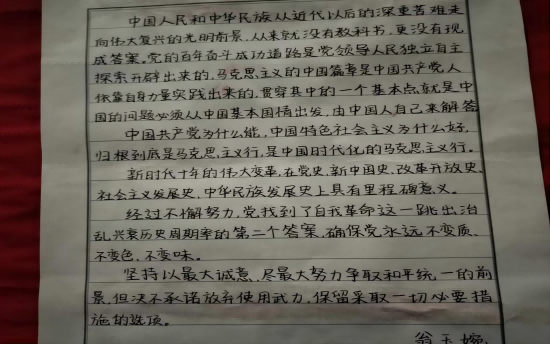 中国人民和中华民族从近代以后的深重苦难走
向伟大复兴的光明前景,从来就没有教科书,更没有现
成答案。党的百年奋斗成功道路是党领导人民独立自主
探索开辟出来的,马克思主义的中国篇章是中国共产党人
依靠自身力量实践出来的,贯穿其中的一个基本点就是中
国的问题必须从中国基本国情出发,由中国人自己来解答
中国共产党为什么能,中国特色社会主义为什么好,
归根到底是马克思主义行,是中国时代化的马克思主义行。
新时代十年的伟大变革,在党史、新中国史、改革开放史、
社会主义发展史、中华民族发展史上具有里程碑意义。
经过不懈努力,党找到了自我革命这一跳出治
乱兴衰历史周期率的第二个答案,确保党永远不变质、
不变色、不变味。
坚持以最大诚意、尽最大努力争取和平统一的前
景,但决不承诺放弃使用武力,保留采取一切必要措
施的选项。
翁玉婉